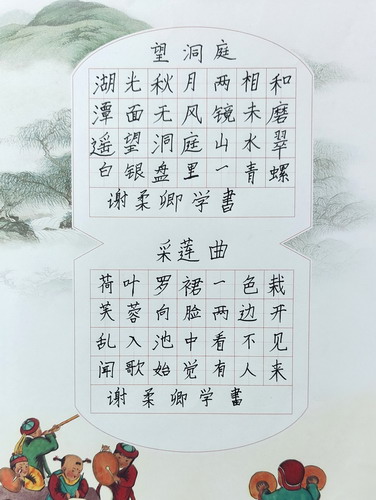 望洞庭
湖光秋月两相和
潭面无风镜未磨
遥望洞庭山水翠
白银盘里一青螺
谢柔卿学书
采莲曲
荷叶罗裙一色栽
芙蓉向脸两边开
乱入池中看不见
闻歌始觉有人来
谢柔卿学书